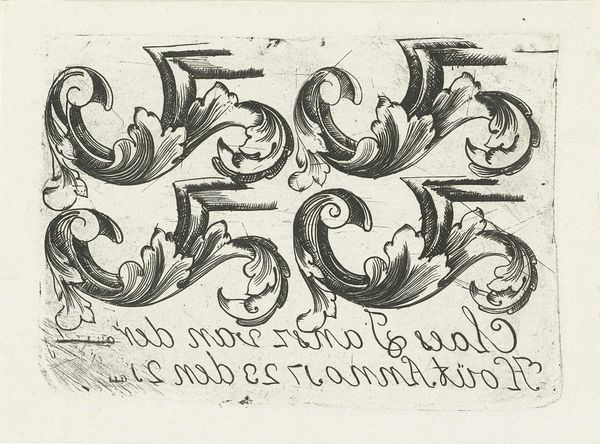 Claes Jansz van der
Hoüt Anno 1723 den 21